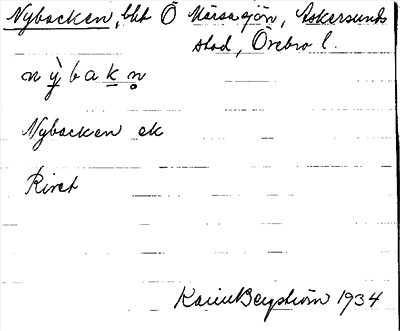 Nybacken, bht Ö Märsasjön, Askersunds
stad, Örebro l.
nỳbakn̥
Nybacken ek
Rivet
Karin Bergström 1934